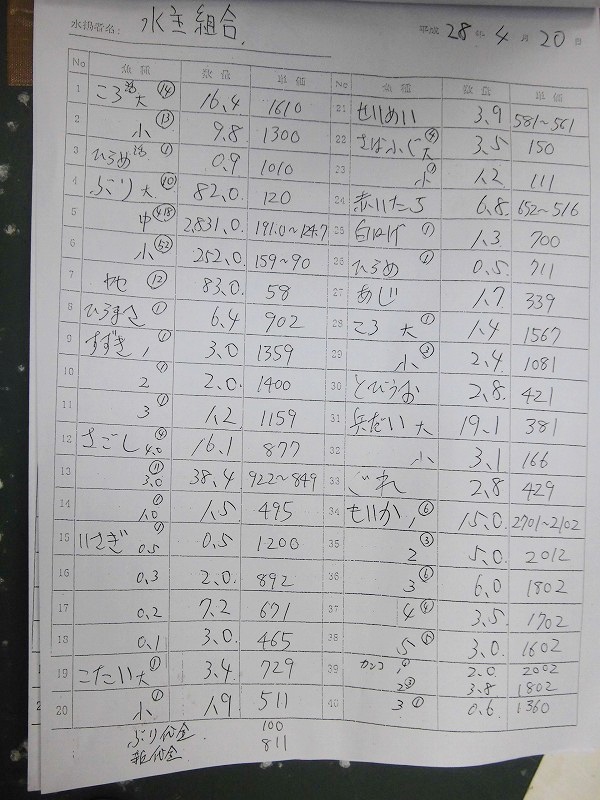 水揚者名: 水主組合. 平成 28 年 4 月 20 日
No 魚種 数量 単価
1 ころ 活 大 ⑭ 16.4 1610
2 小 ⑬ 9.8 1300
3 ひらめ 活 ① 0.9 1010
4 ぶり 大 ⑩ 82.0 120
5 中 418 2,831.0 191.0~124.7
6 小 52 252.0 159~90
7 ⑫ 83.0 58
8 ひらまさ ① 6.4 902
9 すずき 1 ① 3.0 1359
10 2 ① 2.0 1400
11 3 ① 1.2 1159
12 さごし 4.0 ④ 16.1 877
13 3.0 ⑪ 38.4 922~849
14 1.0 ① 1.5 495
15 いさぎ 0.5 ① 0.5 1200
16 0.3 2.0. 892
17 0.2 7.2 671
18 0.1 3.0 465
19 こだい 大 ① 3.4 729
20 小 ① 1.9 511
ぶり代金 100
811
No 魚種 数量 単価
21 せいめい 3.9 581~561
22 さばふぐ 大 ④ 3.5 150
23 小 ① 1.2 111
24 赤いたち 6.8 652~516
25 ① 1.3 700
26 ひらめ ① 0.5 711
27 あじ 1.7 339
28 ころ 大 ① 1.4 1567
29 小 ③ 2.4 1081
30 とびうお 2.8 421
31 兵だい 大 19.1 381
32 小 3.1 166
33 ぐれ 2.8 429
34 もいか 1 ⑥ 15.0 2701~2102
35 2 ③ 5.0 2012
36 3 ⑥ 6.0 1802
37 4 ④ 3.5 1702
38 5 3.0 1602
39 カンコ 1 2.0 2002
2 ③ 3.8 1802
40 3 ① 0.6 1360